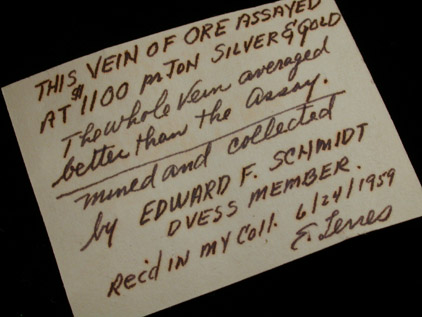 THIS VEIN OF ORE ASSAYED
AT $1100 pr TON SILVER & GOLD
The whole Vein averaged
better than the assay.
mined and collected
by EDWARD F. SCHMIDT
DVESS MEMBER.
Rec'd IN MY Coll. 6/24/1959
E.